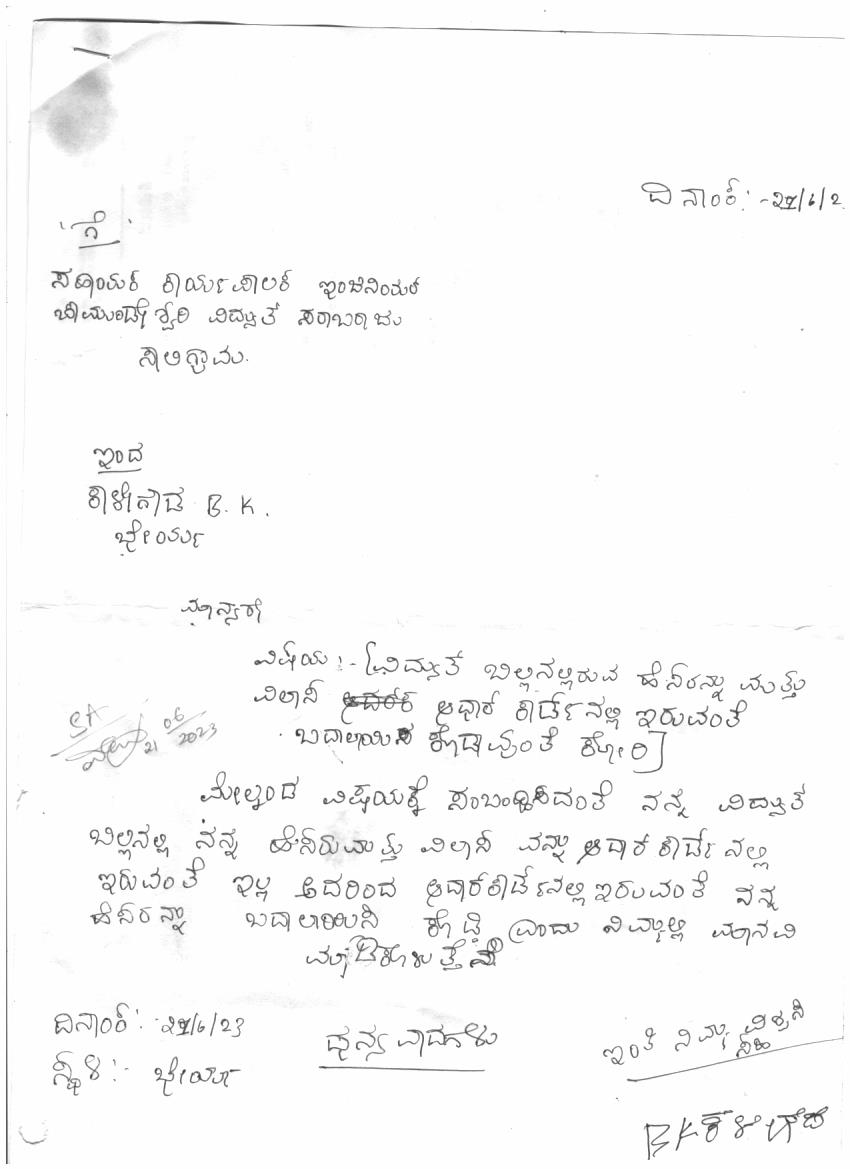 ದಿನಾಂಕ:-21/6/2
'ಗೆ'
ಸಹಾಯಕ ಕಾರ್ಯಪಾಲಕ ಇಂಜಿನಿಯರ
ಚಾಮುಂಡೇಶ್ವರಿ ವಿದ್ಯುತ ಸರಾಬರಾಜು
ಸಾಲಿಗ್ರಾಮ.
ಇಂದ
ಕಾಳೇಗೌಡ B. K.
ಭೇರ್ಯ
ಮಾನ್ಯರೇ
ವಿಷಯ :- [ವಿದ್ಯುತ ಬಿಲ್ಲಿನಲ್ಲಿರುವ ಹೆಸರನ್ನು ಮತ್ತು
ವಿಲಾಸ ಆಧಾರ ಕಾರ್ಡನಲ್ಲಿ ಇರುವಂತೆ
ಬದಾಲಾಯಿಸಿ ಕೊಡುವಂತೆ ಕೋರಿ]
06
21 2023
ಮೇಲ್ಕಂಡ ವಿಷಯಕ್ಕೆ ಸಂಬಂಧಿಸಿದಂತೆ ನನ್ನ ವಿದ್ಯುತ
ಬಿಲ್ಲಿನಲ್ಲಿ ನನ್ನ ಹೆಸರು ಮತ್ತು ವಿಲಾಸ ವನ್ನು ಆದಾರ ಕಾರ್ಡ ನಲ್ಲಿ
ಇರುವಂತೆ ಇಲ್ಲ ಅದರಿಂದ ಆದಾರ್ ಕಾರ್ಡನಲ್ಲಿ ಇರುವಂತೆ ನನ್ನ
ಹೆಸರನ್ನು ಬದಾಲಾಯಿಸಿ ಕೊಡಿ ಎಂದು ನಿಮ್ಮಲ್ಲಿ ಮಾನವಿ
ಮಾಡಿಕೊಳುತ್ತೇನೆ
ದಿನಾಂಕ:- 21/6/23 ಧನ್ಯವಾದಗಳು ಇಂತಿ ನಿಮ್ಮ ವಿಶ್ವಸಿ
ಸ್ಥಳ:- ಭೇರ್ಯ
BK ಕಳೇಗೌಡ